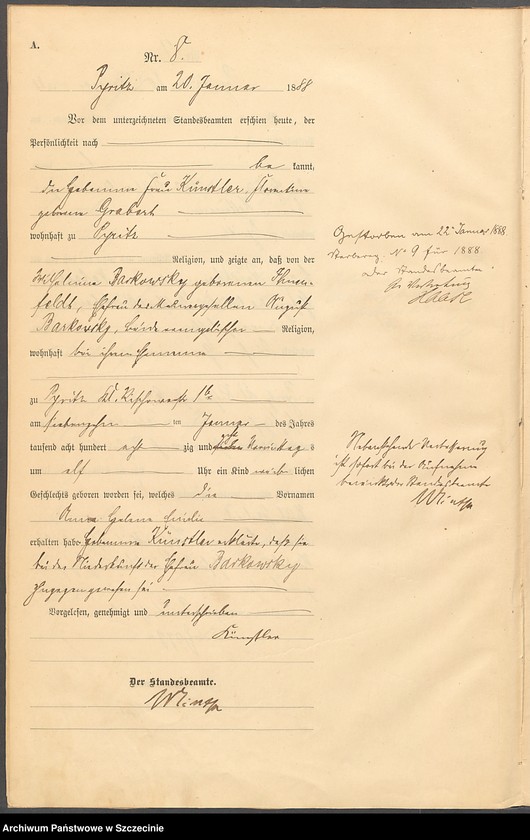 A.
Nr. 8.
Pyritz am 20. Januar 1888
Vor dem unterzeichneten Standesbeamten erschien heute, der
Persönlichkeit nach
be kannt,
die Hebamme Frau Künstler,
geborene Grabert
wohnhaft zu Pyritz
Religion, und zeigte an, daß von der
Wilhelmine Barkowsky geborenen
feldt, Ehefrau des Maurergesellen August
Barkowsky, beide evangelischer Religion,
wohnhaft bei ihrem Ehemanne
zu Pyritz
am siebenzehn ten Januar des Jahres
tausend acht hundert acht zig und Vormittags
um elf Uhr ein Kind weib lichen
Geschlechts geboren worden sei, welches die Vornamen
Anna Helene
erhalten habe. Hebamme Künstler erklärte, daß sie
bei der Niederkunft der Ehefrau Barkowsky
zugegen gewesen sei.
Vorgelesen, genehmigt und unterschrieben
Künstler
Der Standesbeamte.
Gestorben am 22. Januar 1888
No 9 für 1888
Der Standesbeamte
In Vertretung
Nebenstehende Verbesserung
ist sofort bei der Aufnahme
Standesbeamte
Archiwum Państwowe w Szczecinie